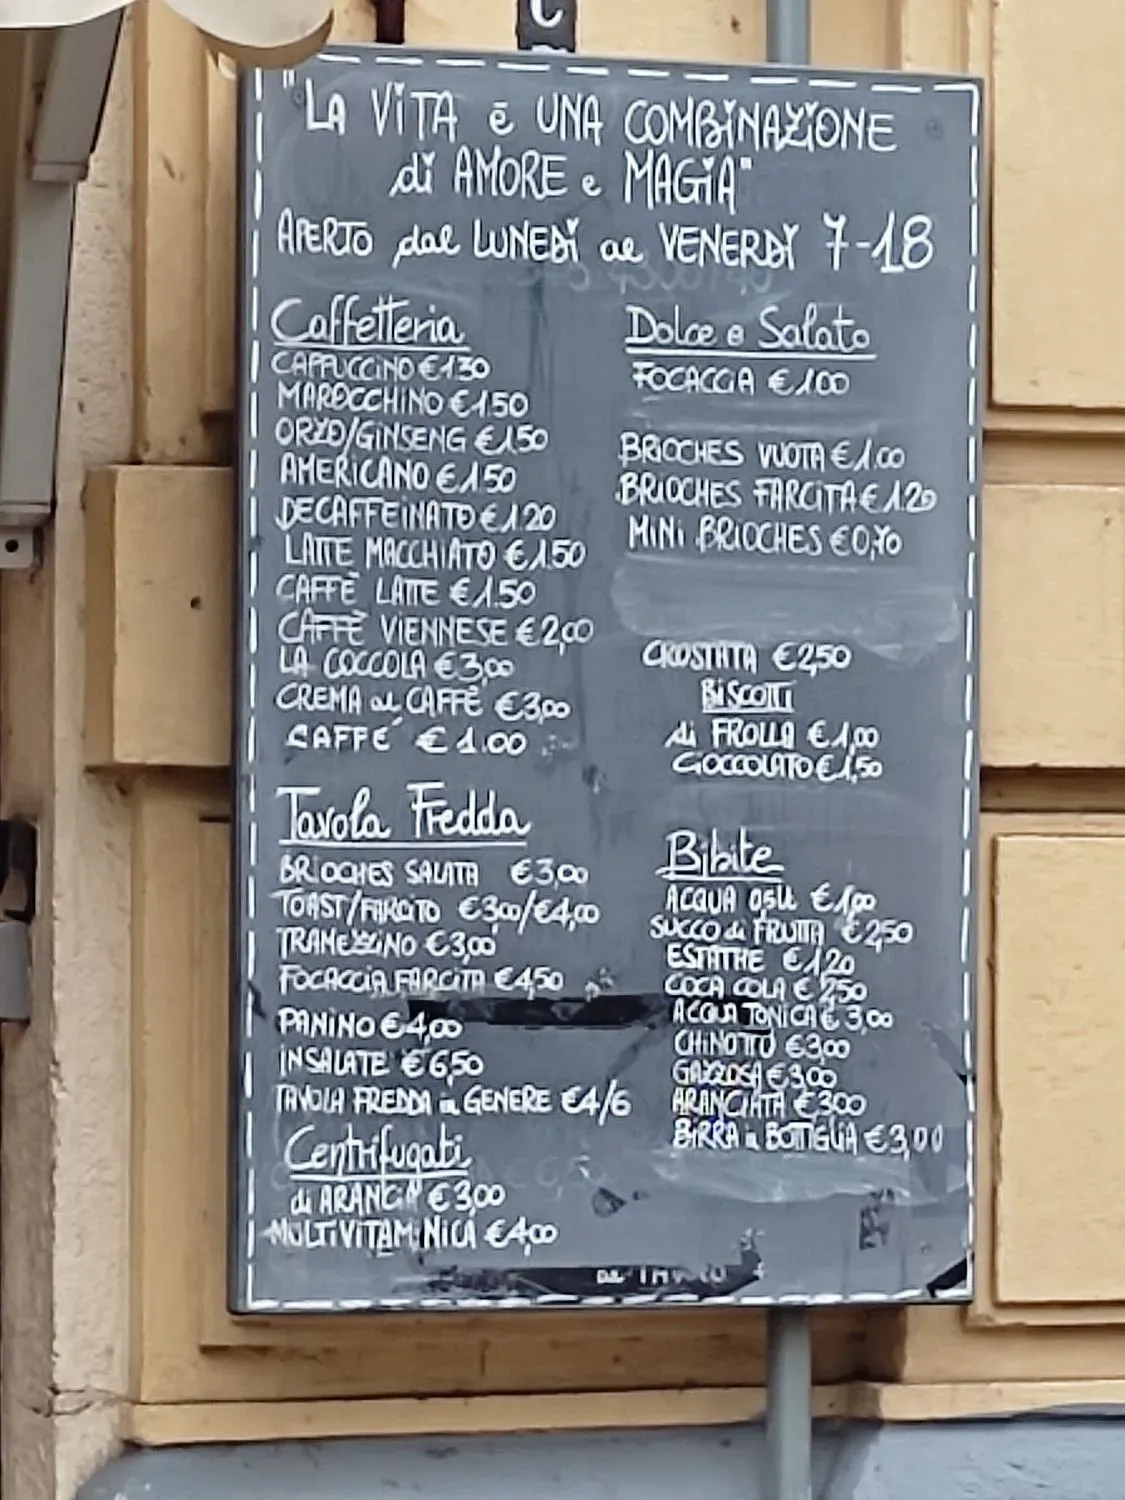 "LA VITA è UNA COMBINAZIONE
di AMORE e MAGIA"
APERTO dal LUNEDÌ al VENERDÌ 7-18
Caffetteria
CAPPUCCINO €1.30
MAROCCHINO €1.50
ORZO/GINSENG €1.50
AMERICANO €1.50
DECAFFEINATO €1.20
LATTE MACCHIATO €1.50
CAFFÈ LATTE €1.50
CAFFÈ VIENNESE €2,00
LA COCCOLA €3,00
CREMA al CAFFÈ €3,00
CAFFÉ €1.00
Tavola Fredda
BRIOCHES SALATA €3,00
TOAST/FARCITO €3,00/€4,00
TRAMEZZINO €3,00
FOCACCIA FARCITA €4,50
PANINO €4,00
INSALATE €6,50
TAVOLA FREDDA in GENERE €4/6
Centrifugati
di ARANCIA €3,00
MULTIVITAMINICA €4,00
Dolce e Salato
FOCACCIA €1.00
BRIOCHES VUOTA €1.00
BRIOCHES FARCITA €1.20
MINI BRIOCHES €0,70
CROSTATA €2,50
BISCOTTI
di FROLLA €1,00
CIOCCOLATO €1,50
Bibite
ACQUA 0,5L €1,00
SUCCO di FRUTTA €2,50
ESTATHE €1,20
COCA COLA €2,50
ACQUA TONICA €3,00
CHINOTTO €3,00
GAZZOSA €3,00
ARANCIATA €3,00
BIRRA in BOTTIGLIA €3,00